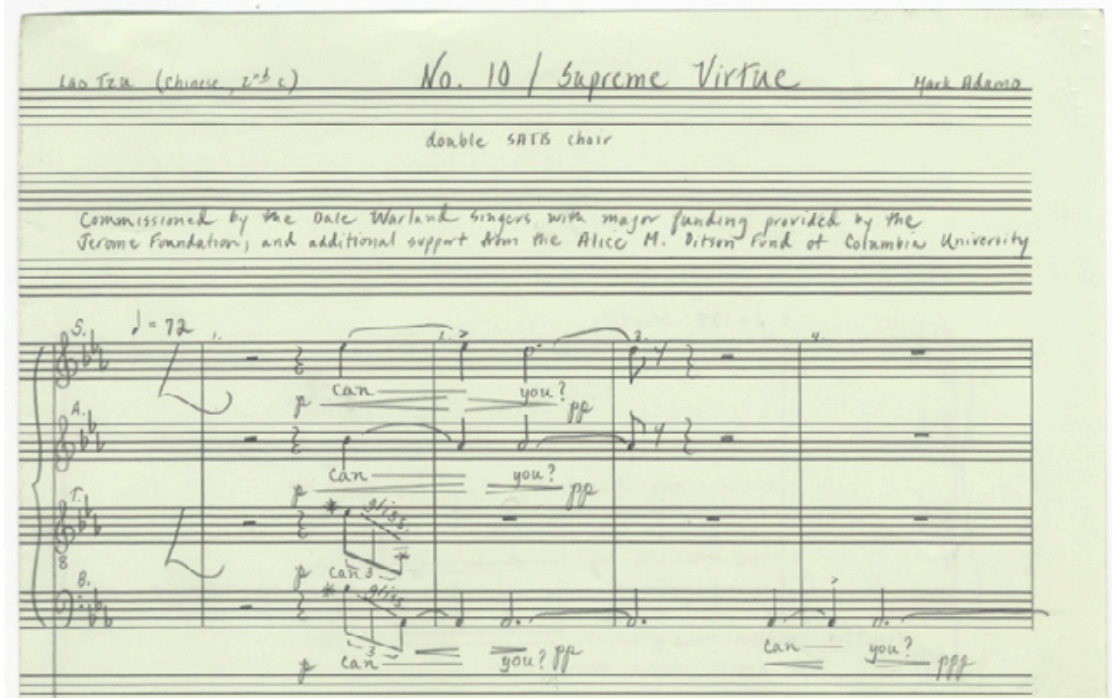 Lao Tzu (Chinese, 2nd c)
No. 10 / Supreme Virtue
Mark Adamo
double SATB choir
Commissioned by the Dale Warland Singers, with major funding provided by the
Jerome Foundation, and additional support from the Alice M. Ditson Fund of Columbia University
S. ♩ = 72 1. 2. 3. 4.
can you?
p pp
A.
can you?
p pp
T. * gliss.
8
p can 3 *
B. * gliss
3
p can you? pp can you? ppp